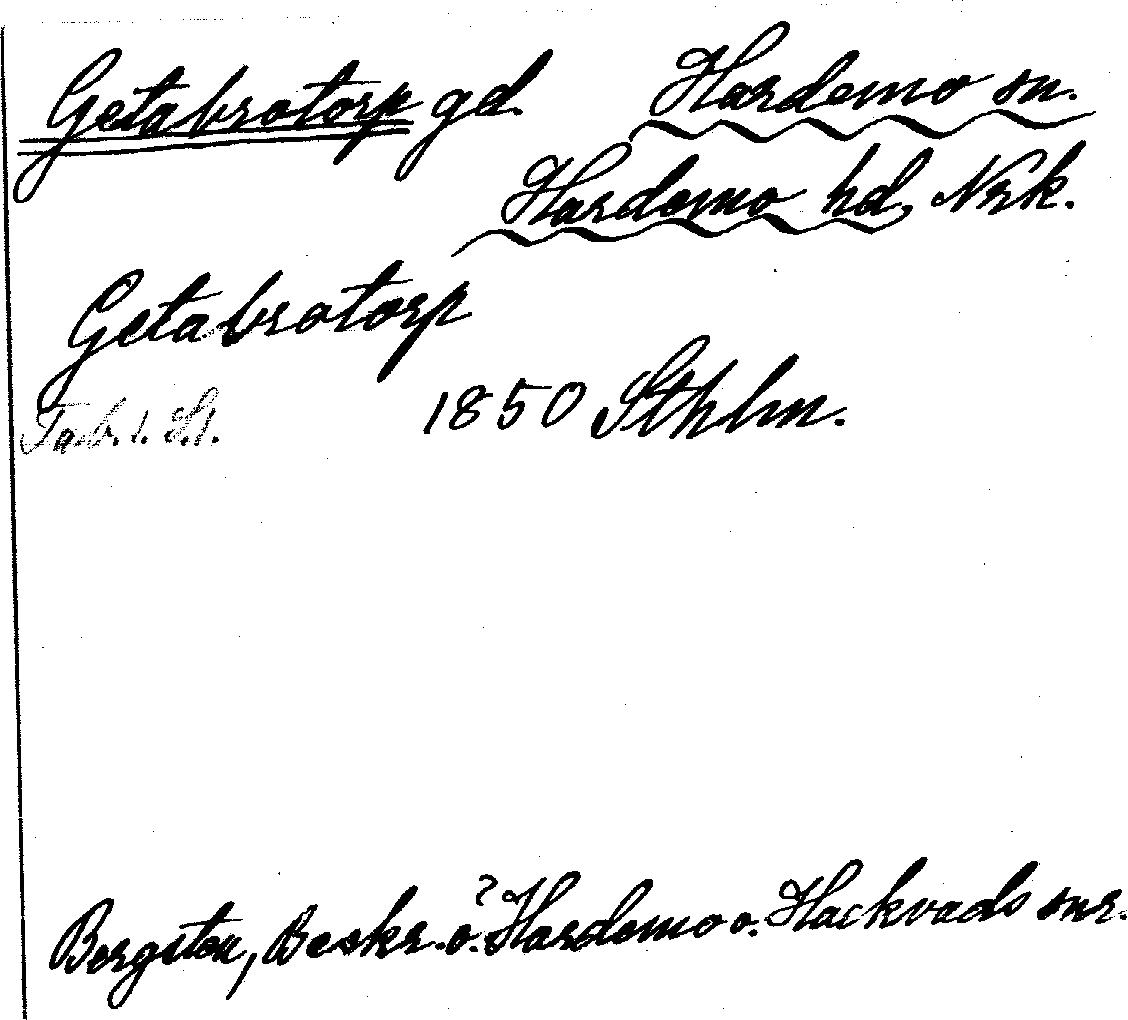 Getabrotorp gd. Hardemo sn.
Hardemo hd, Nrk.
Getabrotorp
Tab. 1. S. 1. 1850 Sthlm.
Bergsten, Beskr. ö. Hardemo o. Hackvads snr.